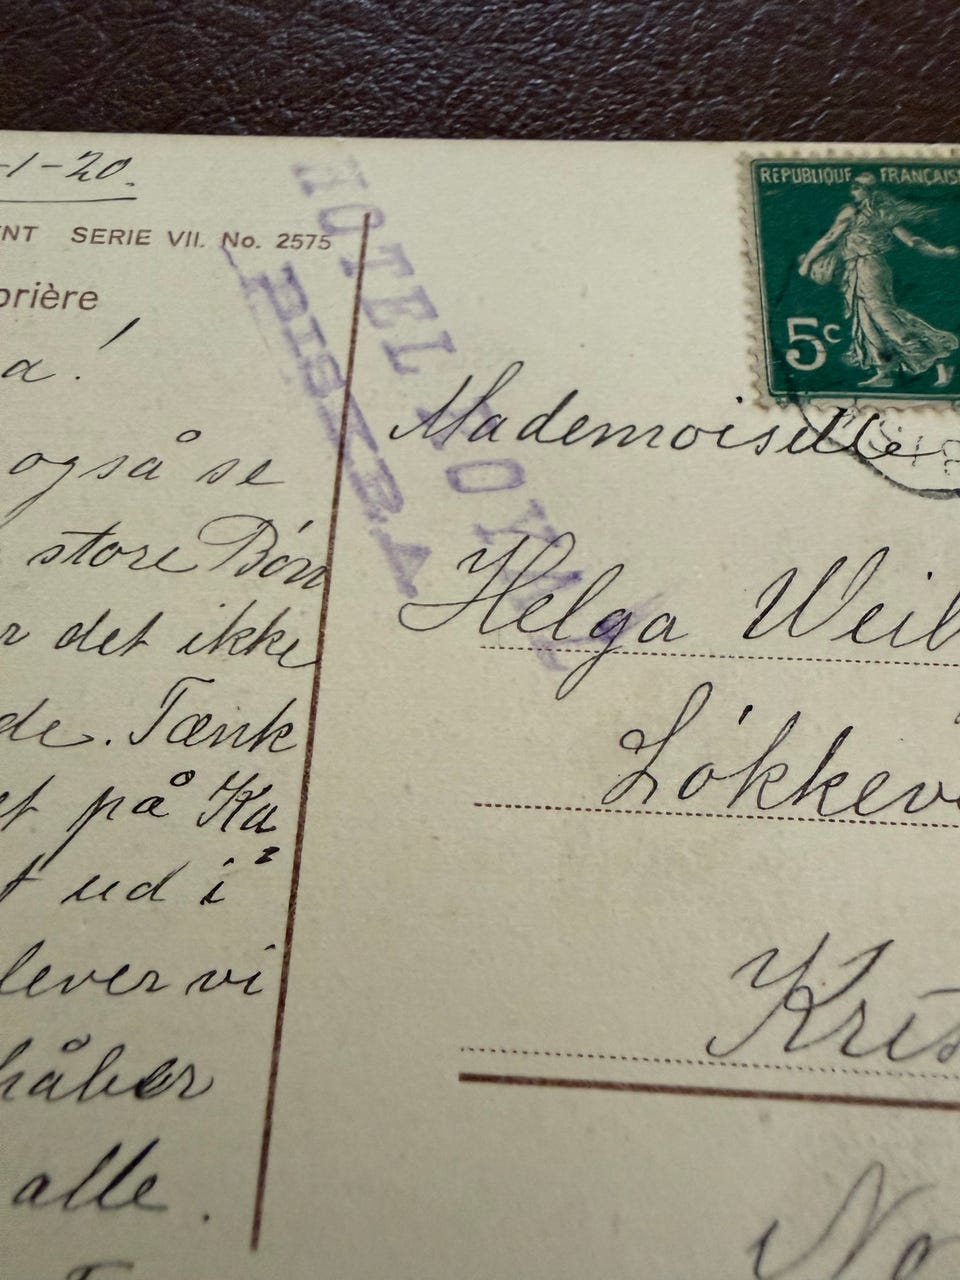 -1-20.
NT SERIE VII. No. 2575
brière
a!
også se
store Børn
r det ikke
de. Tænk
t på Ka
t ud i
lever vi
håber
alle.
HOTEL ROYAL
BISKRA
REPUBLIQUE FRANÇAIS
5c
Mademoiselle
Helga Weib
Løkkev
Kris
No